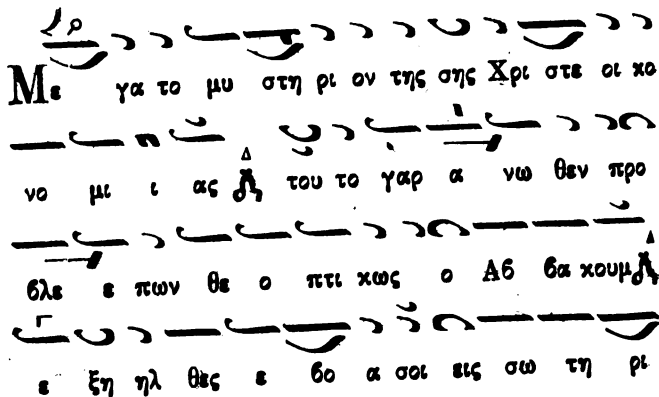 Με γα το μυ στη ρι ον της σης Χρι στε οι κο
νο μι ι ας Δ του το γαρ α νω θεν προ
βλε ε πων θε ο πτι κως ο Αβ βα κουμ Δ
ε ξη ηλ θες ε βο α σοι εις σω τη ρι